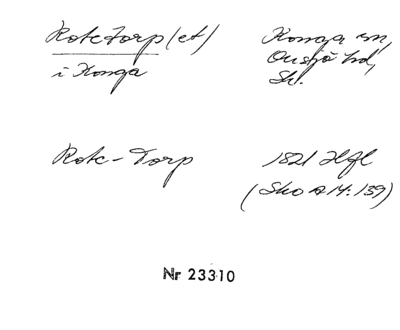 Rotetorp(et)
i Konga
Konga sn,
Onsjö hd,
Sk.
Rote-Torp
1821 Hfl
(Sko A 14:139)
Nr 23310